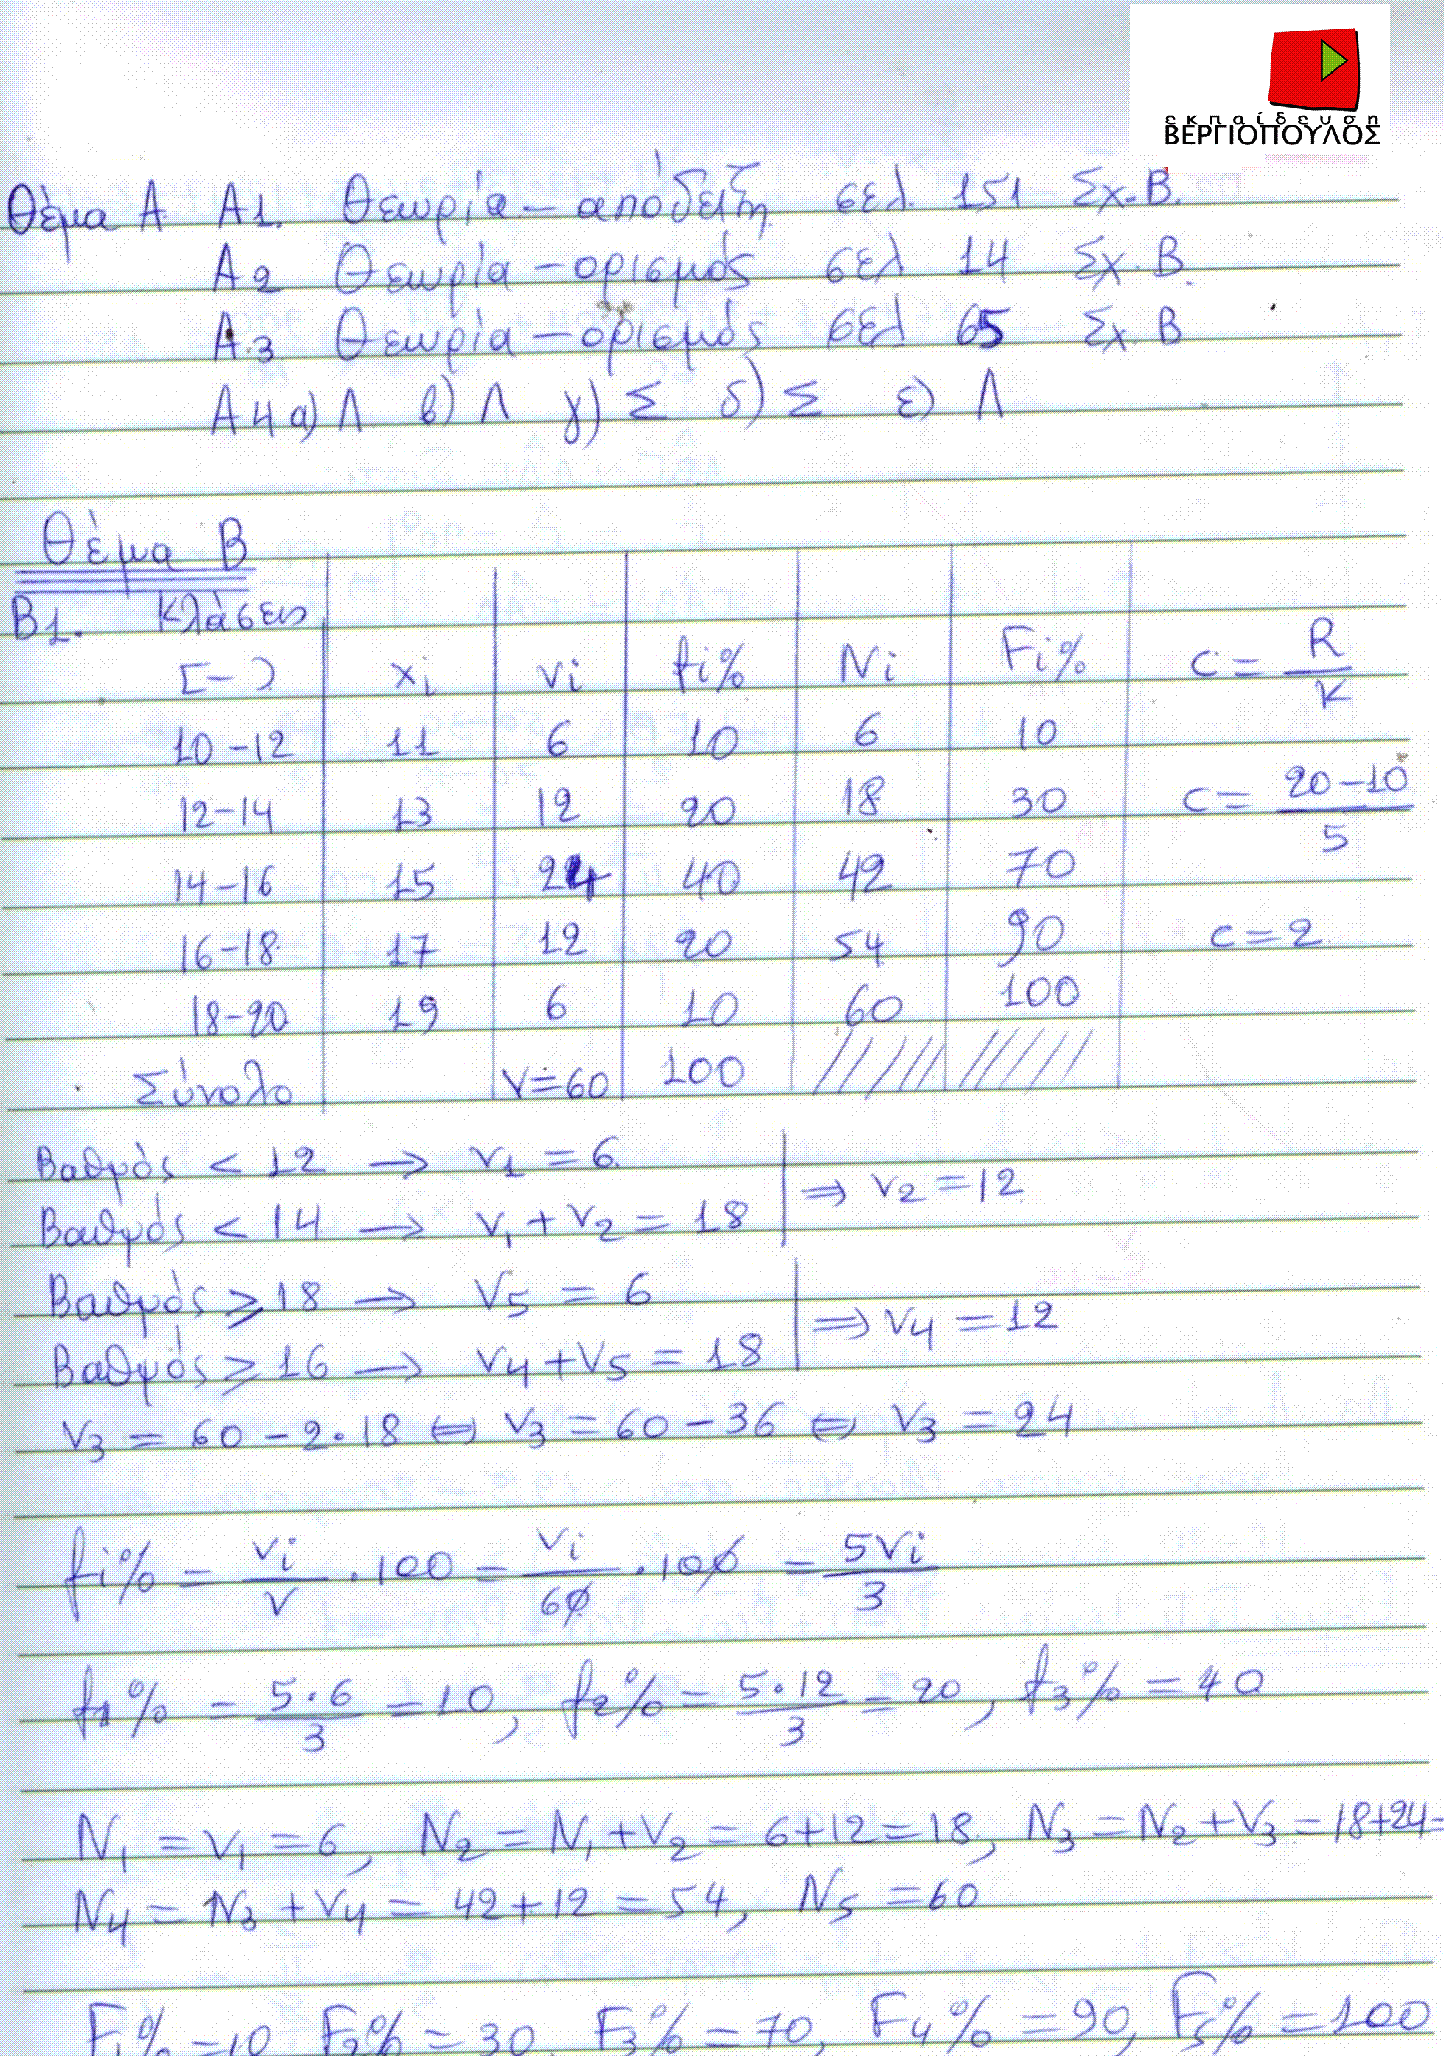 εκπαίδευση
ΒΕΡΓΙΟΠΟΥΛΟΣ
Θέμα Α Α1. Θεωρία - απόδειξη σελ. 151 Σχ. Β.
Α2 Θεωρία - ορισμός σελ 14 Σχ. Β.
Α.3 Θεωρία - ορισμός σελ 65 Σχ. Β
Α4 α) Λ β) Λ γ) Σ δ) Σ ε) Λ
Θέμα Β
Β1. Κλάσεις
[ - ) xi vi fi% Ni Fi% c = R/κ
10-12 11 6 10 6 10
12-14 13 12 20 18 30 c = 20-10/5
14-16 15 24 40 42 70
16-18 17 12 20 54 90 c = 2
18-20 19 6 10 60 100
Σύνολο v=60 100
Βαθμός < 12 → v1 = 6
Βαθμός < 14 → v1 + v2 = 18 ⇒ v2 = 12
Βαθμός ≥ 18 → v5 = 6
Βαθμός ≥ 16 → v4 + v5 = 18 ⇒ v4 = 12
v3 = 60 - 2·18 ⇔ v3 = 60 - 36 ⇔ v3 = 24
fi% = vi/v · 100 = vi/60 · 100 = 5vi/3
f1% = 5·6/3 = 10, f2% = 5·12/3 = 20, f3% = 40
N1 = v1 = 6, N2 = N1 + v2 = 6+12 = 18, N3 = N2 + v3 = 18+24=
N4 = N3 + v4 = 42+12 = 54, N5 = 60
F1% = 10, F2% = 30, F3% = 70, F4% = 90, F5% = 100